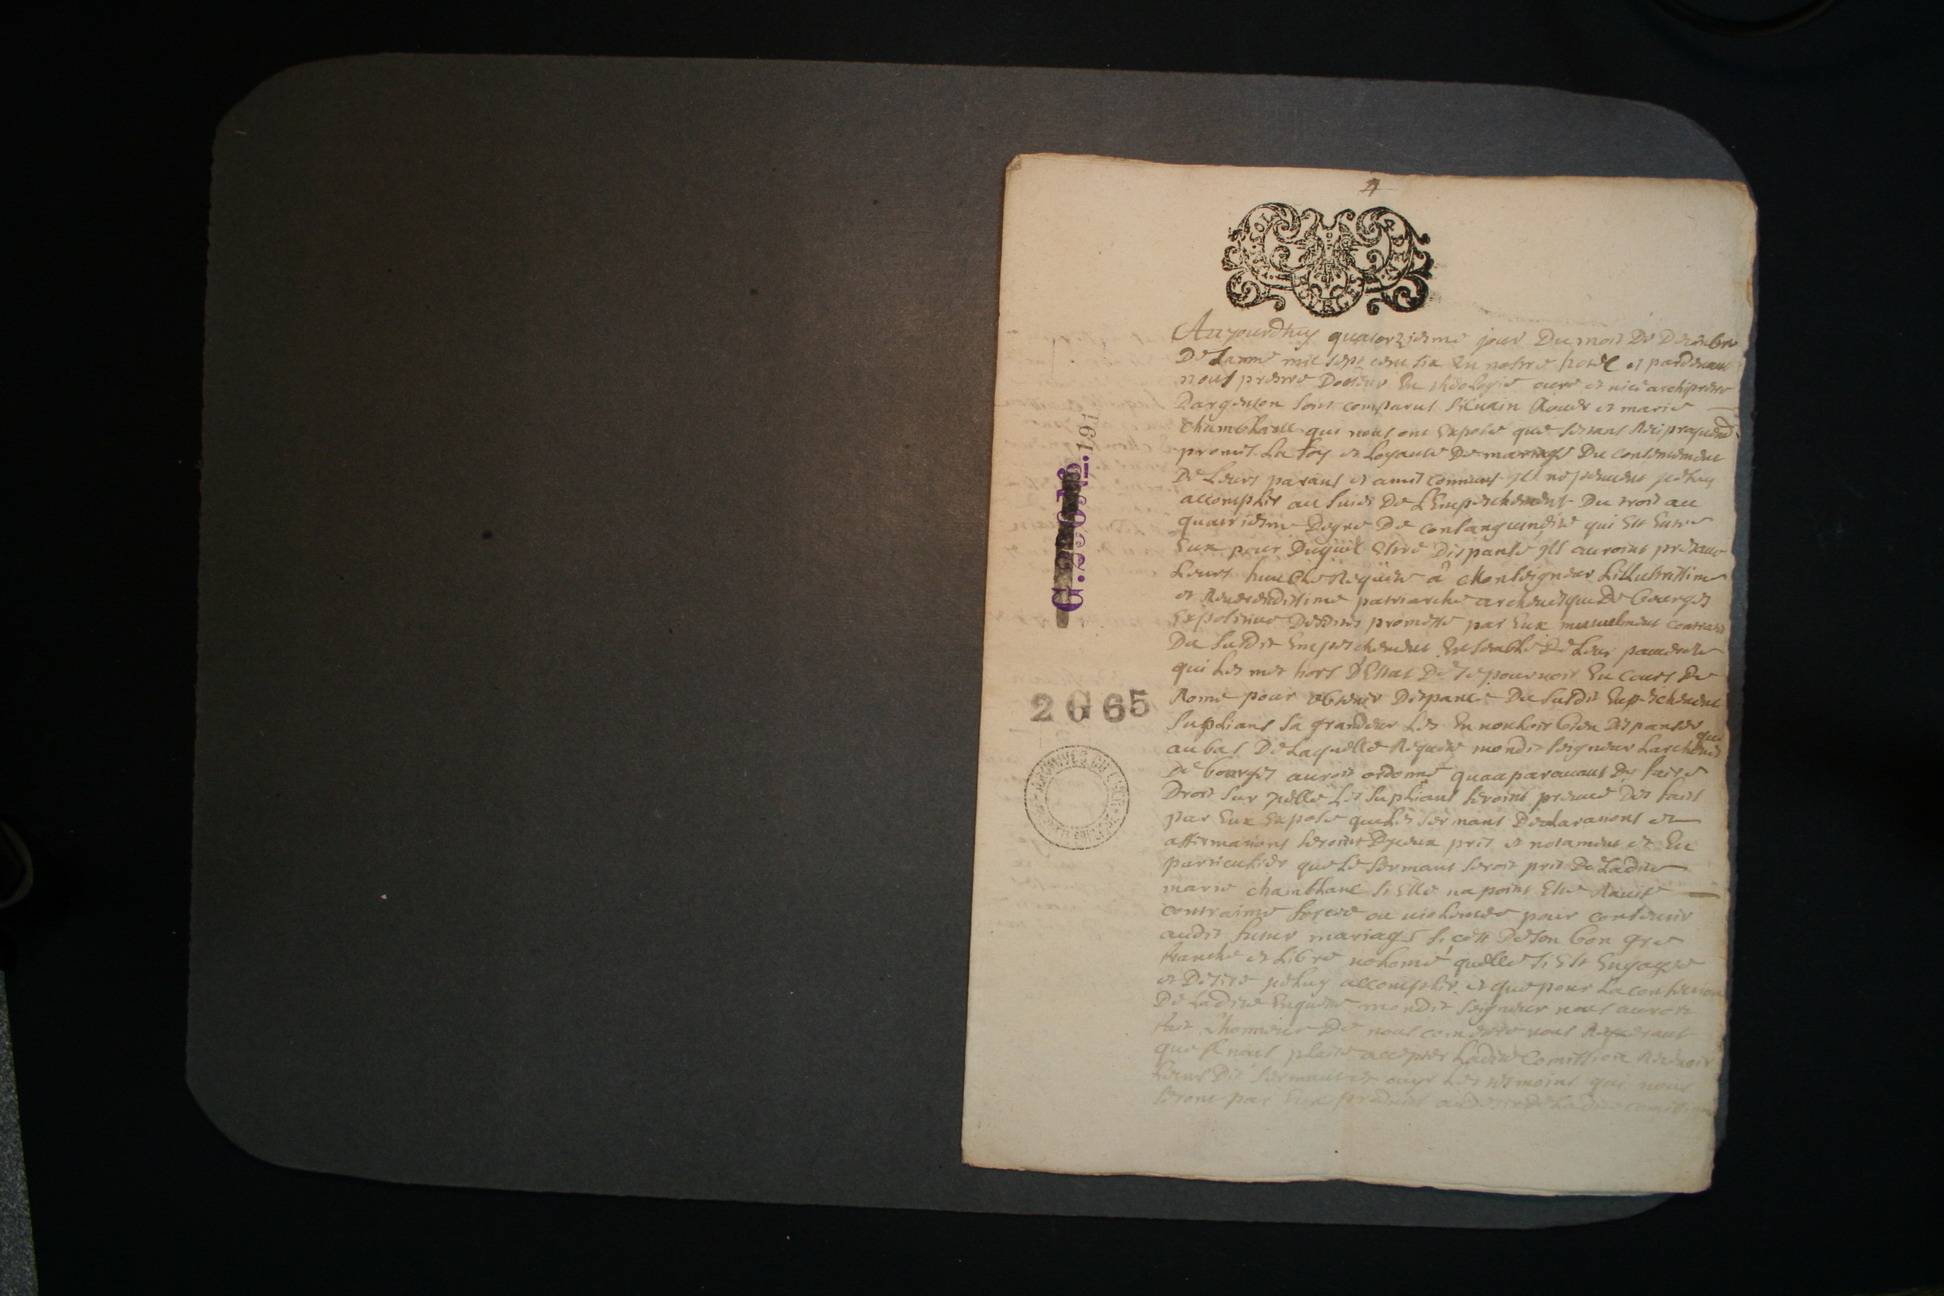 4
Aujourdhuy quatorziesme jour Du mois De Decembre
De Lanné mil sept cent six En nostre hotel et pardevant
nous prestre Docteur En theologie curé et vicearchiprestre
Dargenton sont comparus Silvain et marie
chamblant qui nous ont Exposé que sestans Reciproquemt
promis La foy et Loyauté De mariage Du consentement
De Leurs parans et amis communs yls ne peuvent jceluy
accomplir au suiet De L'Empeschement Du trois au
quatriesme Degré De consanguinité qui Est Entre
Eux pour Duquel Estre Dispansé yls auroint présanté
Leurs humble Requeste a Monseigneur Lillustrissime
et Reverendissime patriarche archevesque De bourges
Expositive Desdites promesse par Eux mutuelment contract
Du susdit Empeschement Ensemble De Leur pauvreté
qui Les met hors D'Estat De se pourvoir En cours De
Rome pour obtenir Dispance Du susdit Empeschement
Supliant Sa grandeur Les En vouloir bien Dispanser
au bas De Laquelle Requeste mondit seigneur Larchevesque
De bourges auroit ordonné quauparavant De faire
Droit sur jcelle Les supliant feroint preuve Des faits
par Eux Exposé que Les sermans Declarations et
affirmations seroint D'jceux pris et notament et En
particulier que Le sermant seroit pris De Ladite
marie chamblant si Elle na point Esté Ravie
contrainte forcée ou violentée pour consentir
audit futur mariage si cest De son bon gré
franche et Libre volonté quelle si Est Engagée
et Desire jceluy accomplir et que pour La confection
De Ladite Enqueste mondit seigneur nous auroit
fait L'honneur De nous commettre nous Requerant
que Il nous plaise accepter Ladite Comission Recevoir
Leurs Dit sermans et ouyr Les tesmoins qui nous
seront par Eux produits au desir de Ladite comission
G.2260
191
2 G 65